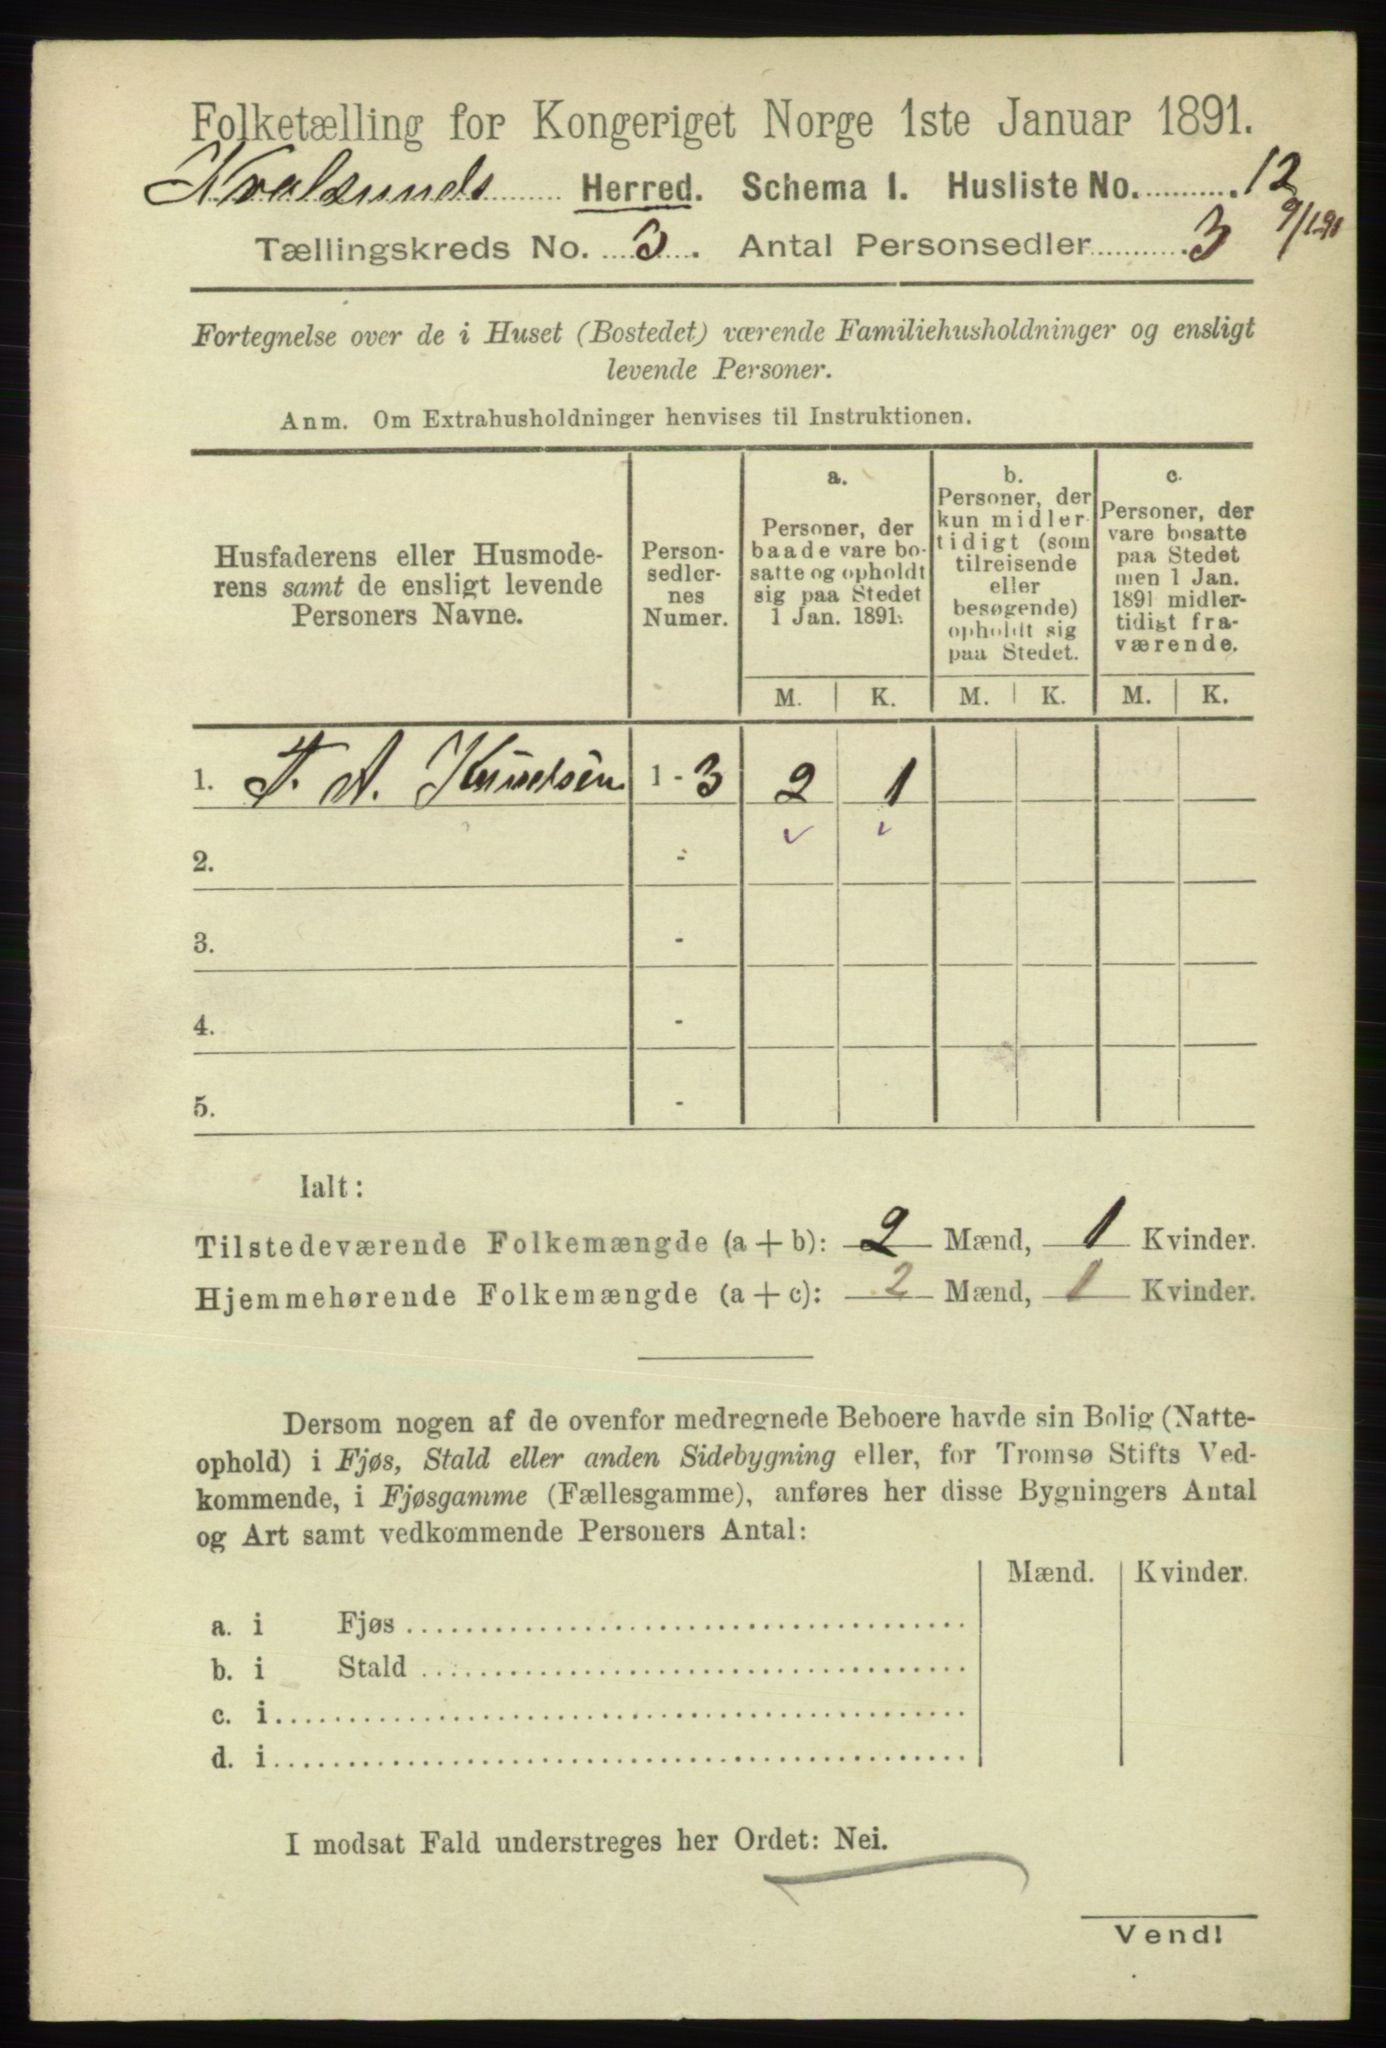 Folketælling for Kongeriget Norge 1ste Januar 1891.
Kvalsunds Herred. Schema I. Husliste No. 12
9/1 91
Tællingskreds No. 3. Antal Personsedler 3
Fortegnelse over de i Huset (Bostedet) værende Familiehusholdninger og ensligt
levende Personer.
Anm. Om Extrahusholdninger henvises til Instruktionen.
Husfaderens eller Husmode-
rens samt de ensligt levende
Personers Navne.
Person-
sedler-
nes
Numer.
a.
Personer, der
baade vare bo-
satte og opholdt
sig paa Stedet
1 Jan. 1891.
b.
Personer, der
kun midler-
tidigt (som
tilreisende
eller
besøgende)
opholdt sig
paa Stedet.
c.
Personer, der
vare bosatte
paa Stedet
men 1 Jan.
1891 midler-
tidigt fra-
værende.
M. K. M. K. M. K.
1. F. A. Knudsen 1 - 3 2 1
2. -
3. -
4. -
5. -
Ialt:
Tilstedeværende Folkemængde (a + b): 2 Mænd, 1 Kvinder.
Hjemmehørende Folkemængde (a + c): 2 Mænd, 1 Kvinder.
Dersom nogen af de ovenfor medregnede Beboere havde sin Bolig (Natte-
ophold) i Fjøs, Stald eller anden Sidebygning eller, for Tromsø Stifts Ved-
kommende, i Fjøsgamme (Fællesgamme), anføres her disse Bygningers Antal
og Art samt vedkommende Personers Antal:
Mænd. Kvinder.
a. i Fjøs
b. i Stald
c. i
d. i
I modsat Fald understreges her Ordet: Nei.
Vend!